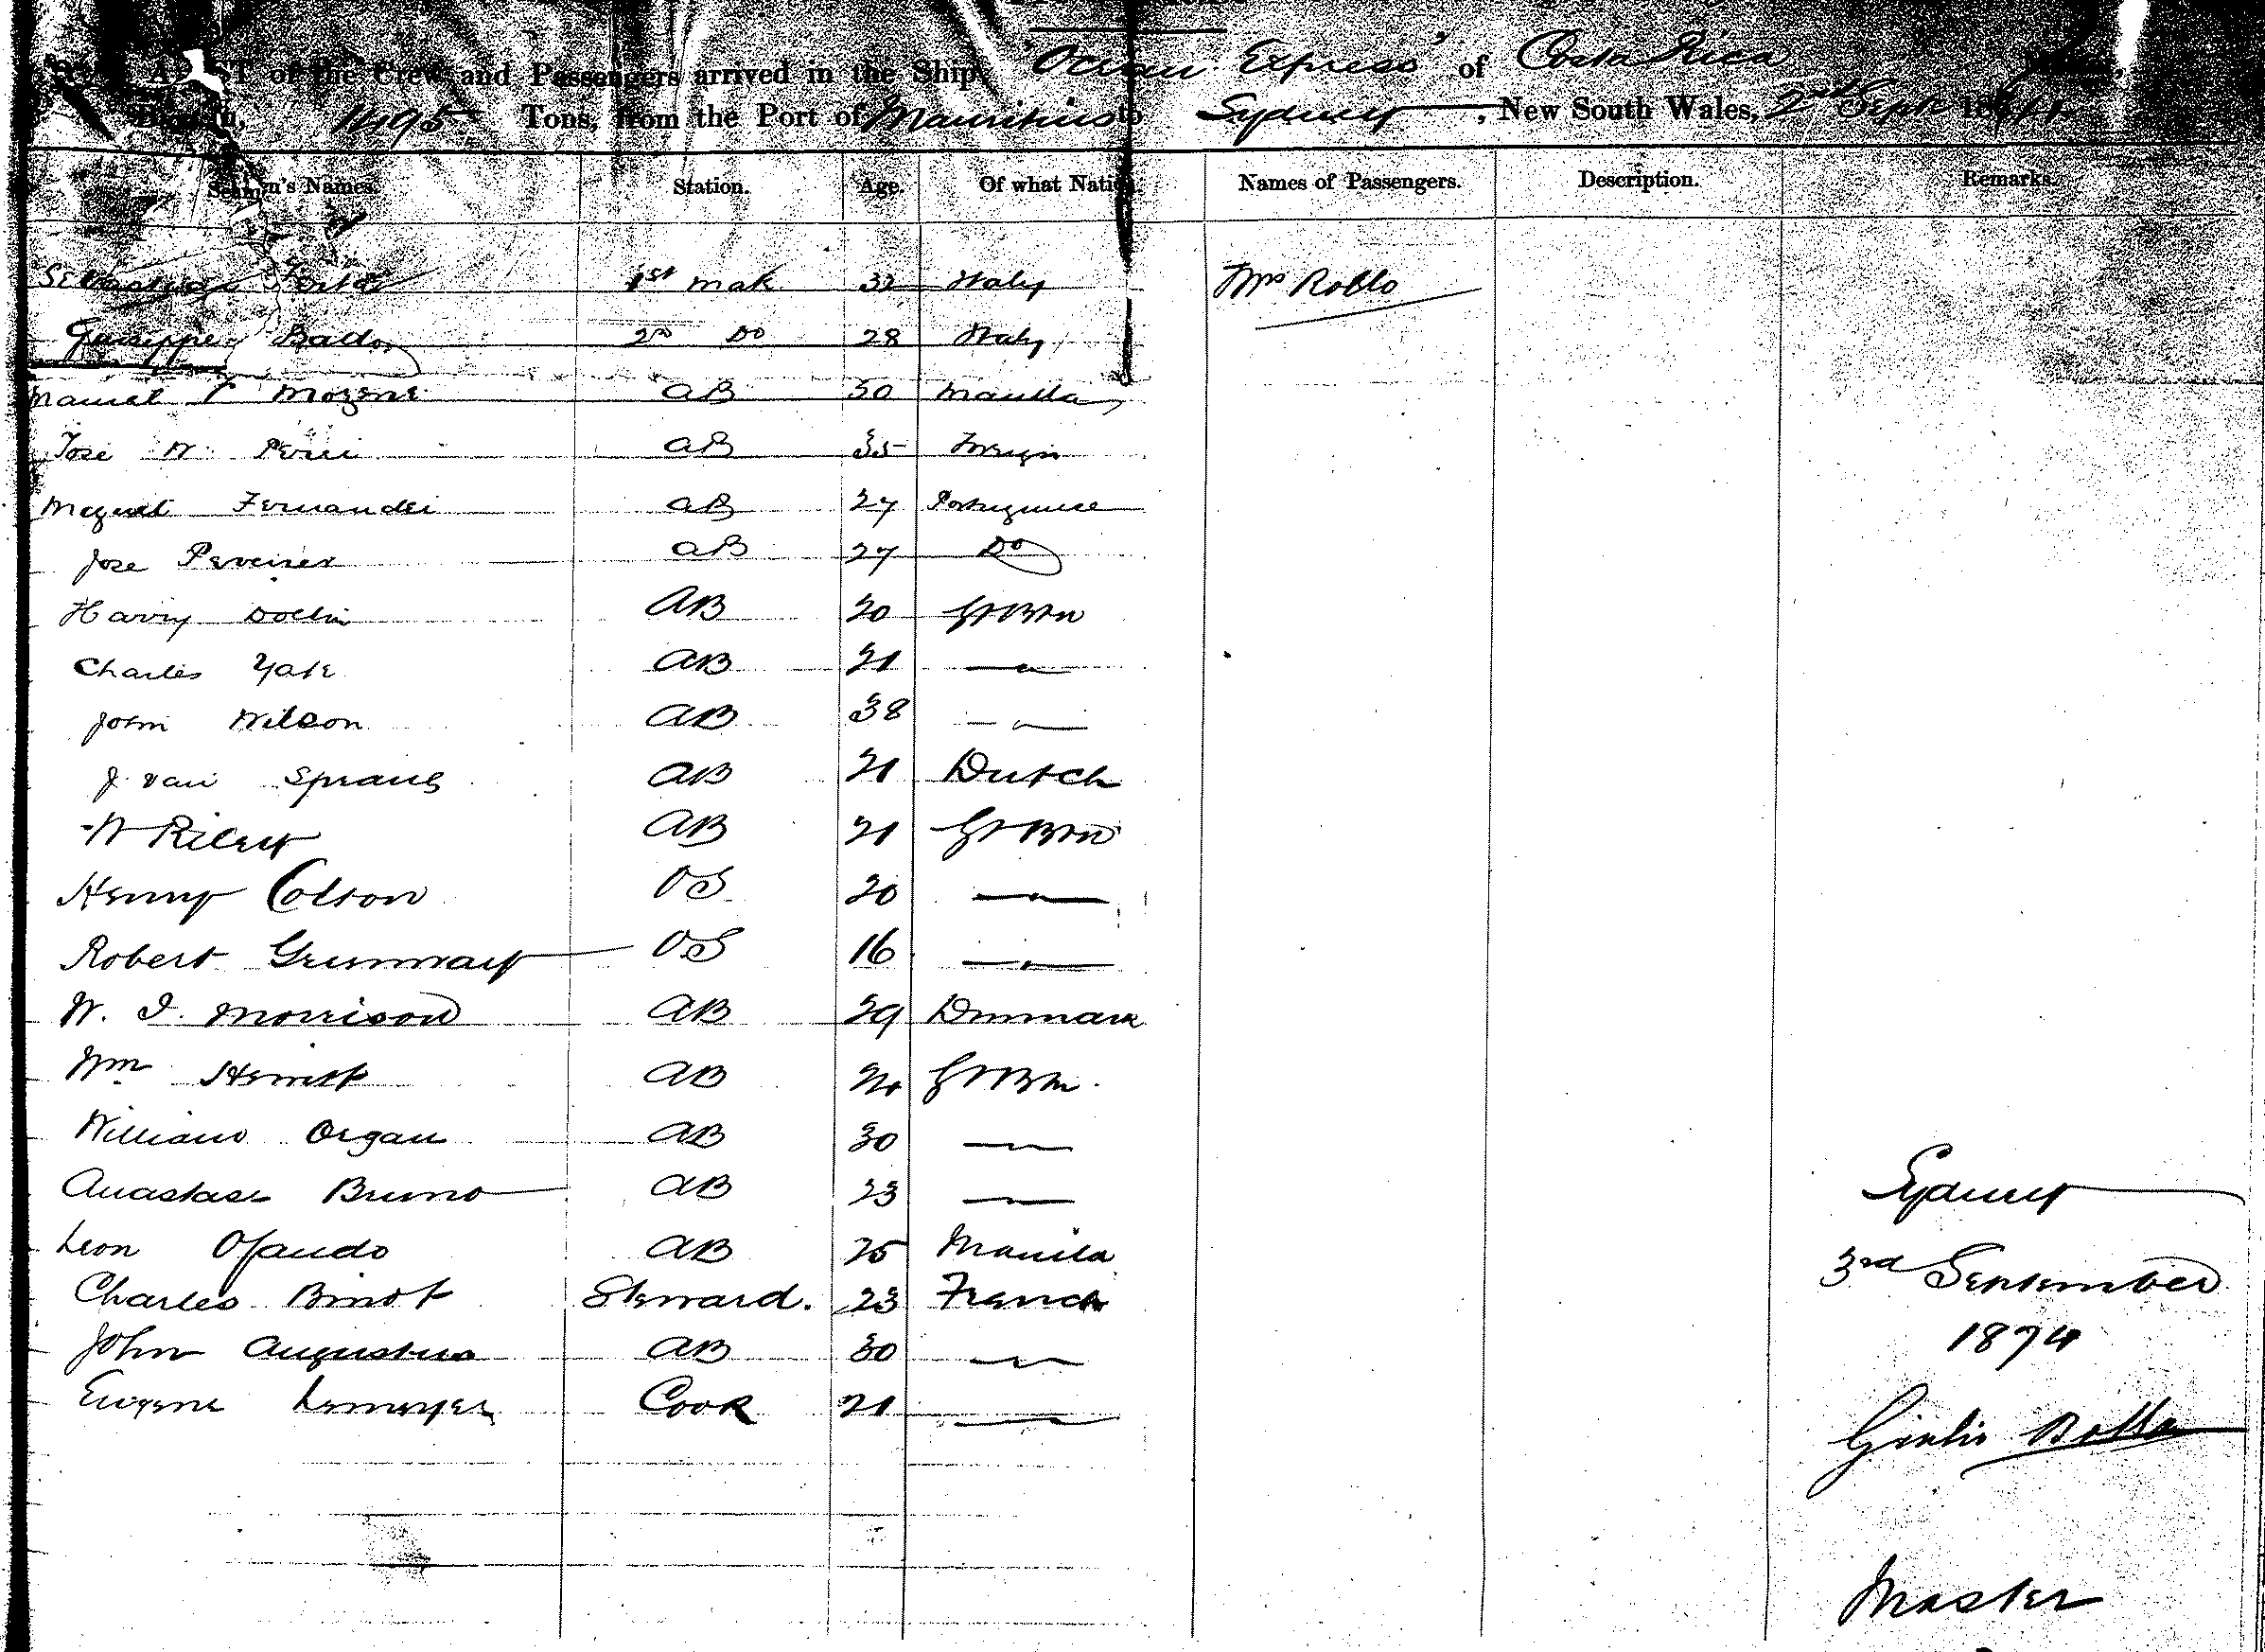 A LIST of the Crew and Passengers arrived in the Ship "Ocean Express" of Costa Rica
1495 Tons, from the Port of Mauritius to Sydney, New South Wales, 2nd Sept 1874
Seamen's Names. Station. Age. Of what Nation. Names of Passengers. Description. Remarks.
1st Mate 32 Italy Mrs Rollo
Guiseppe 2nd Do 28 Italy
AB 30 Manilla
Jose AB 35 Foreign
Meguel Fernandei AB 27 Portuguese
Jose AB 27 Do
Harry Dollin AB 20 Gt Btn
Charles Yate AB 21 —"—
John Wilson AB 38 —"—
J. van Sprang AB 21 Dutch
W Riley AB 21 Gt Btn
Henry Colson OS 20 —"—
Robert OS 16 —"—
W. I. Morrison AB 29 Denmark
Wm AB Gt Btn.
William Organ AB 30 —"—
Anastase Bruno AB 23 —"—
Leon Ofando AB 25 Manila
Charles Binot Steward. 23 French
John Augustus AB 30 —"—
Eugene Lemeyer Cook 21 —"—
Sydney
3rd September
1874
Giulio
Master